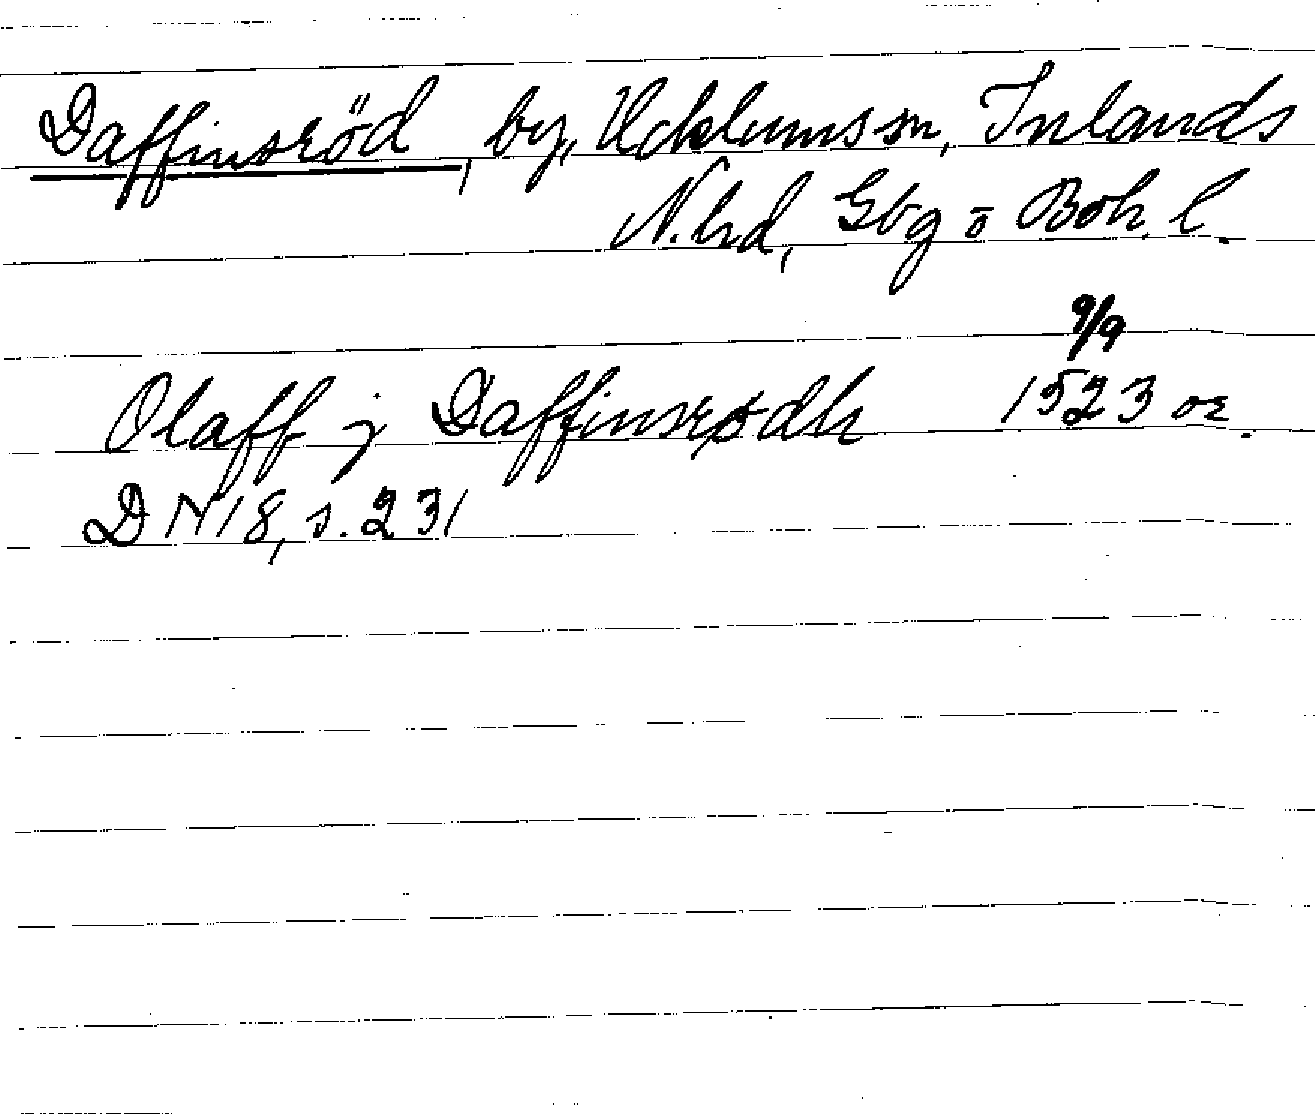 Daffinsröd, by, Ucklums sn, Inlands
N. hd, Gbg o Boh. l.
9/9
Olaff j Daffinsrødh 1523 or.
DN 18, s. 231